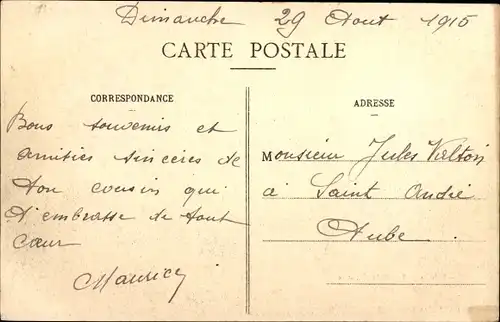 Dimanche 29 Aout 1915
CARTE POSTALE
CORRESPONDANCE
Bons souvenirs et
amities sinceres de
ton cousin qui
t'embrasse de tout
cœur
Maurice
ADRESSE
Monsieur Jules Valton
à Saint André
Aube